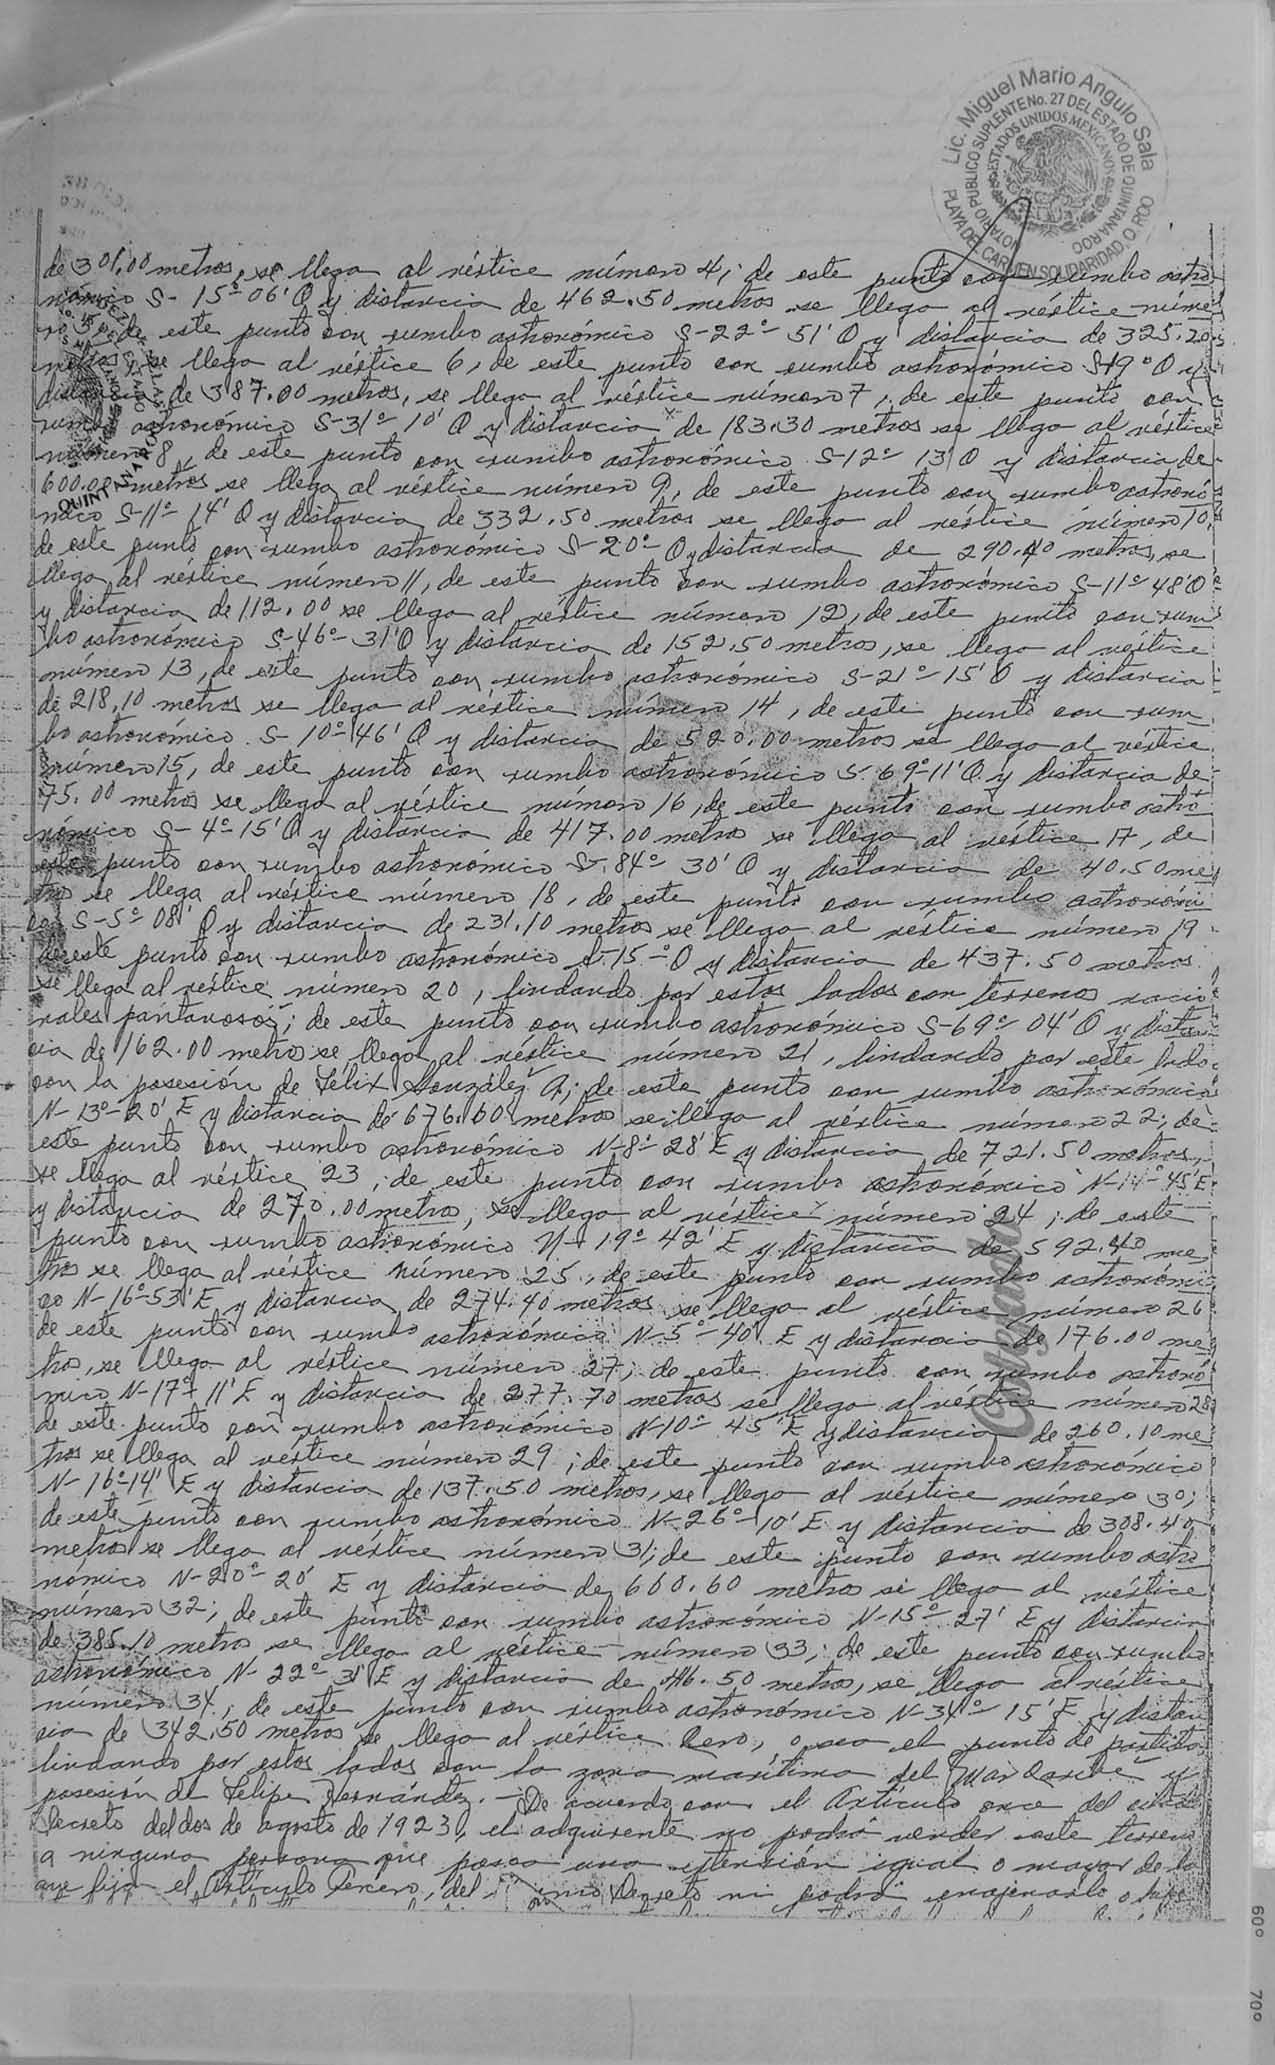 Lic. Miguel Mario Angulo Sala
NOTARIO PUBLICO SUPLENTE No. 27 DEL ESTADO DE QUINTANA ROO
ESTADOS UNIDOS MEXICANOS
PLAYA DEL CARMEN SOLIDARIDAD, Q. ROO
de 301.00 metros, se llega al vértice número 4; de este punto con rumbo astro
nómico S- 15°-06' O y distancia de 462.50 metros se llega al vértice núme
ro 5, de este punto con rumbo astronómico S-22°- 51' O y distancia de 325.20
metros, se llega al vértice 6, de este punto con rumbo astronómico S-19° O y
distancia de 387.00 metros, se llega al vértice número 7, de este punto con
rumbo astronómico S-31°- 10' O y distancia de 183.30 metros se llega al vértice
número 8, de este punto con rumbo astronómico S-12°- 13' O y distancia de
600.00 metros se llega al vértice número 9, de este punto con rumbo astronó
mico S-11°- 14' O y distancia de 332.50 metros se llega al vértice número 10,
de este punto con rumbo astronómico S-20°- O y distancia de 290.40 metros, se
llega al vértice número 11, de este punto con rumbo astronómico S-11°- 48' O
y distancia de 112.00 se llega al vértice número 12, de este punto con rum
bo astronómico S-46°- 31' O y distancia de 152.50 metros, se llega al vértice
número 13, de este punto con rumbo astronómico S-21°- 15' O y distancia
de 218.10 metros se llega al vértice número 14, de este punto con rum
bo astronómico S- 10°- 46' O y distancia de 520.00 metros se llega al vértice
número 15, de este punto con rumbo astronómico S- 69°-11' O y distancia de
75.00 metros se llega al vértice número 16, de este punto con rumbo astro
nómico S- 4°- 15' O y distancia de 417.00 metros se llega al vértice 17, de
este punto con rumbo astronómico S- 84°- 30' O y distancia de 40.50 me
tros se llega al vértice número 18, de este punto con rumbo astronómi
co S-5°- 08' O y distancia de 231.10 metros se llega al vértice número 19
de este punto con rumbo astronómico S-15-° O y distancia de 437.50 metros
se llega al vértice número 20, lindando por estos lados con terrenos nacio
nales pantanosos; de este punto con rumbo astronómico S-69°- 04' O y distan
cia de 162.00 metros se llega al vértice número 21, lindando por este lado
con la posesión de Félix González A; de este punto con rumbo astronómico
N-13°-20' E y distancia de 676.60 metros se llega al vértice número 22; de
este punto con rumbo astronómico N-8°- 28' E y distancia de 721.50 metros,
se llega al vértice 23; de este punto con rumbo astronómico N-14°- 45' E
y distancia de 270.00 metros, se llega al vértice número 24; de este
punto con rumbo astronómico N- 19°- 42' E y distancia de 592.40 me
tros se llega al vértice número 25, de este punto con rumbo astronómi
co N-16°-53' E y distancia de 274.40 metros se llega al vértice número 26
de este punto con rumbo astronómico N-5°- 40' E y distancia de 176.00 me
tros, se llega al vértice número 27; de este punto con rumbo astronó
mico N-17°- 11' E y distancia de 277.70 metros se llega al vértice número 28
de este punto con rumbo astronómico N-10°- 45' E y distancia de 260.10 me
tros se llega al vértice número 29; de este punto con rumbo astronómico
N- 16°-14' E y distancia de 137.50 metros, se llega al vértice número 30;
de este punto con rumbo astronómico N-26°- 10' E y distancia de 308.40
metros se llega al vértice número 31; de este punto con rumbo astro
nómico N-20°- 20' E y distancia de 600.60 metros se llega al vértice
número 32; de este punto con rumbo astronómico N-15°- 27' E y distancia
de 385.10 metros se llega al vértice número 33; de este punto con rumbo
astronómico N- 22°- 31' E y distancia de 416.50 metros, se llega al vértice
número 34, de este punto con rumbo astronómico N-34°- 15' E y distan
cia de 342.50 metros se llega al vértice Cero, o sea el punto de partida
lindando por estos lados con la zona marítima del Mar Caribe y
posesión de Felipe Hernández. - De acuerdo con el Artículo once del
Decreto del dos de agosto de 1923, el adquirente no podrá vender este terreno
a ninguna persona que posea una extensión igual o mayor de la
que fija el Artículo Tercero, del Decreto ni podrá enajenarlo o
Cotejado
60º
70º